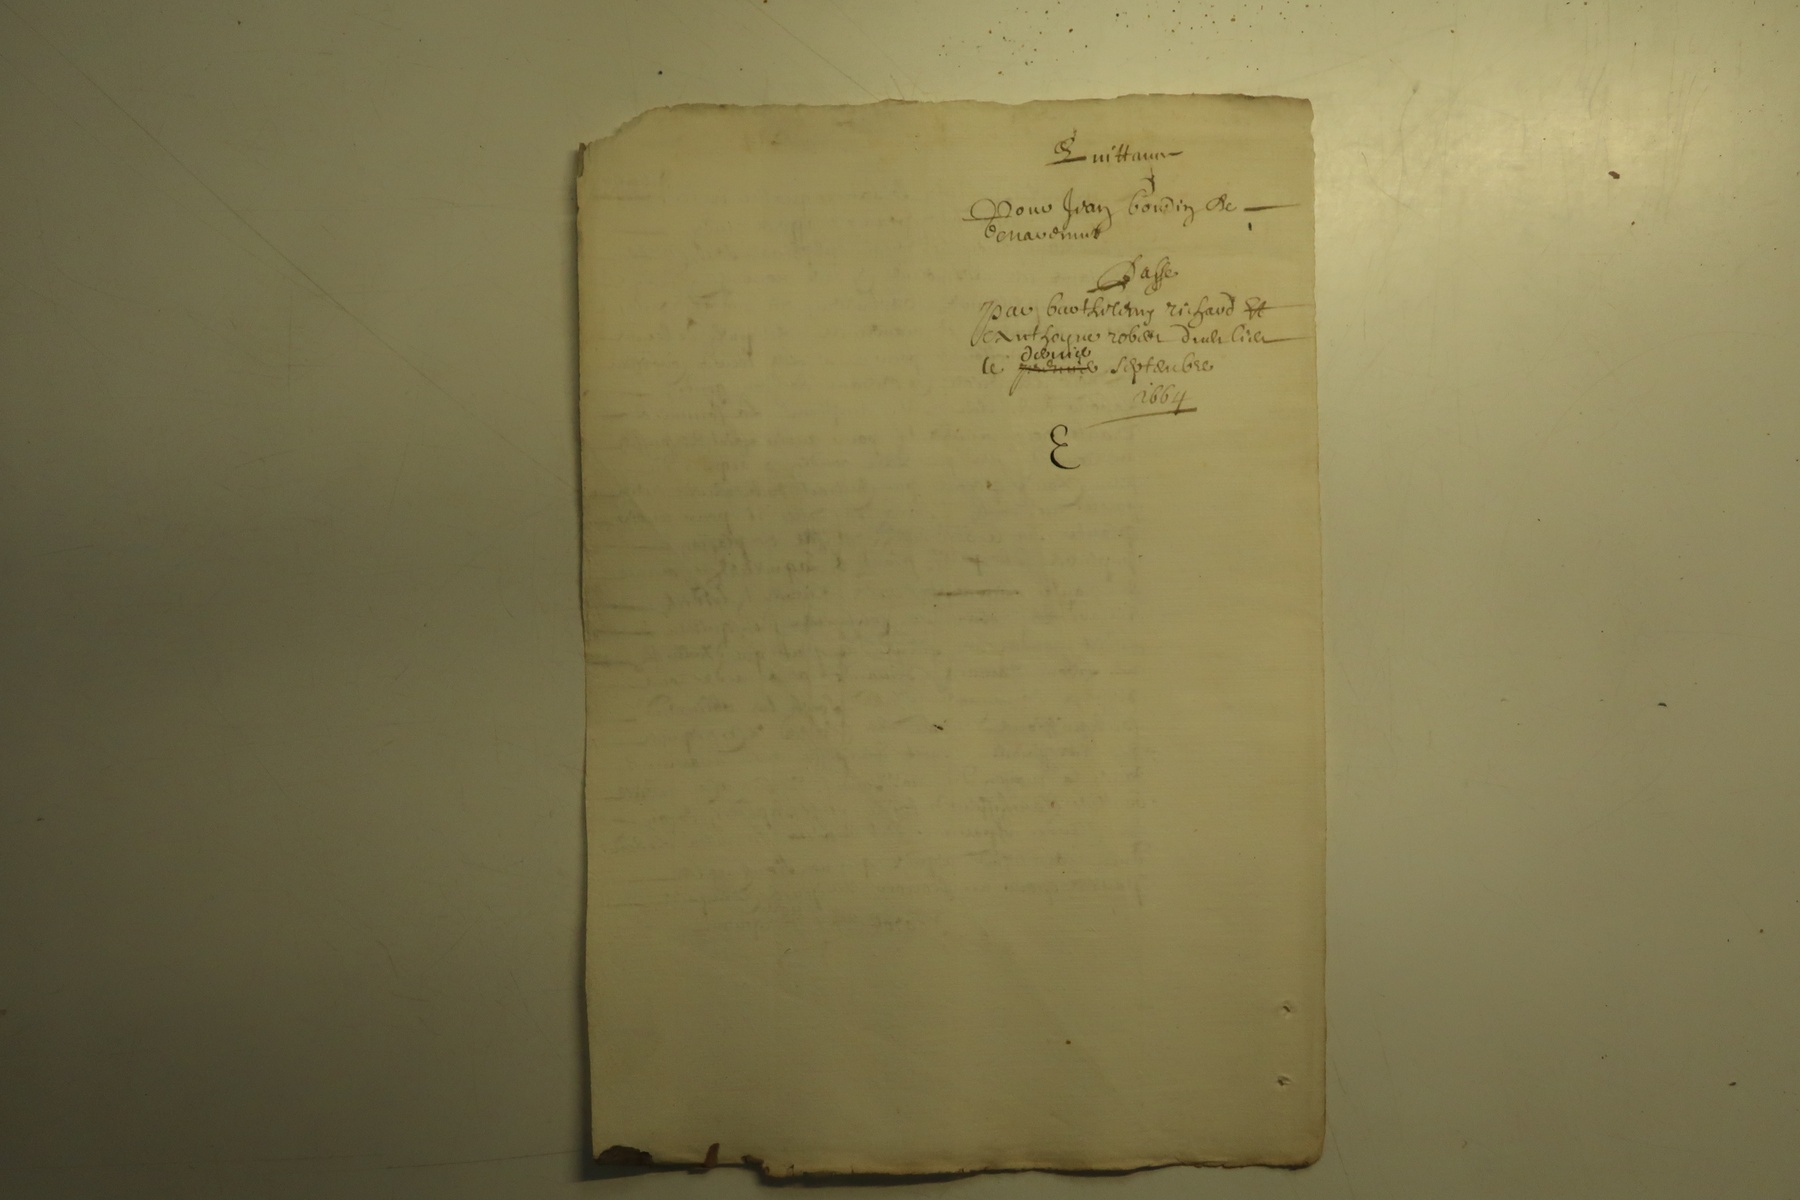 Quittance
Pour Jean bordin de
benavemut
Passe
par barthelemy richard et
Anthoyne rober
le premie dernier septembre
1664
E